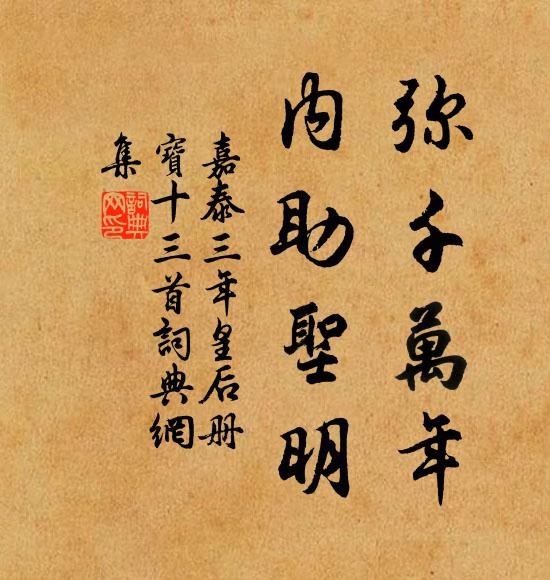 弥千萬年
内助聖明
嘉泰三年皇后册
寶十三首詞典網
集
詞典網印